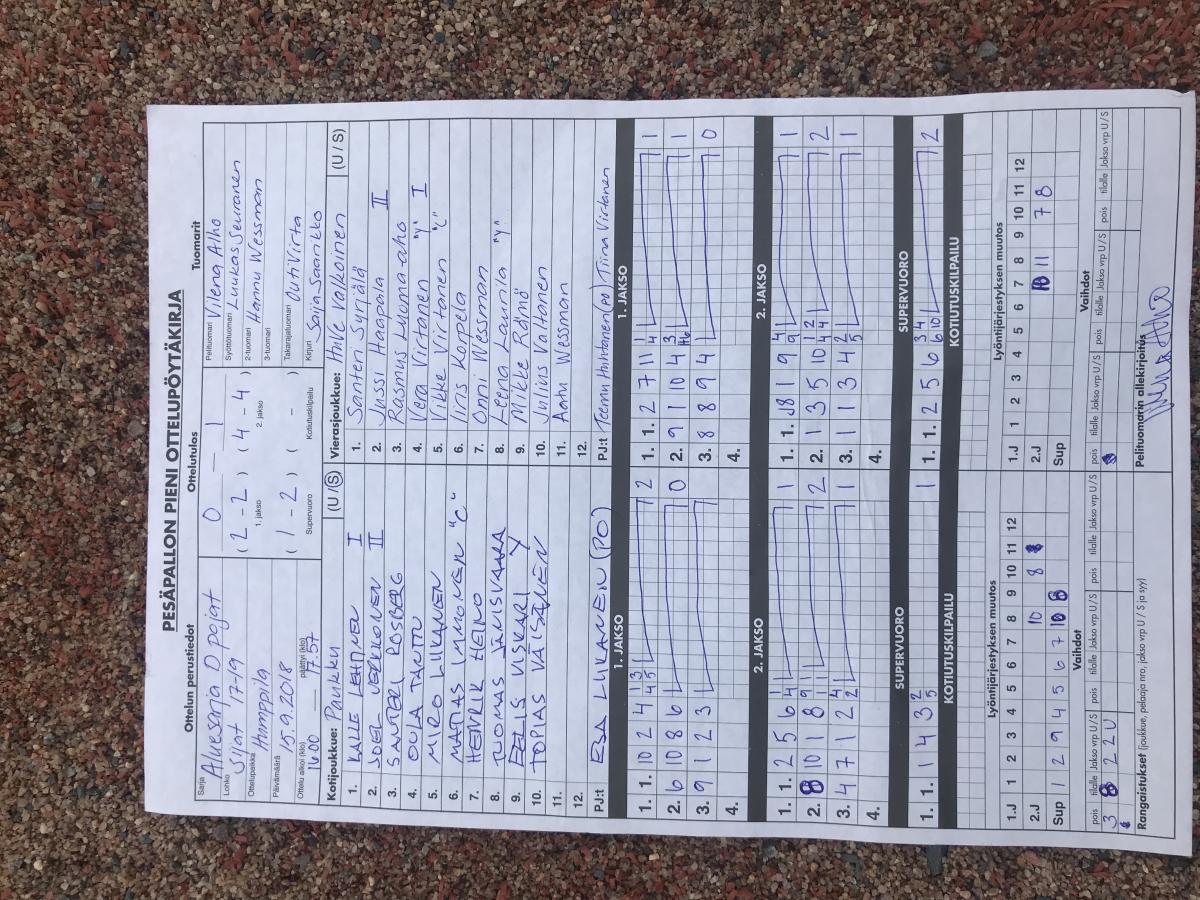 PESÄPALLON PIENI OTTELUPÖYTÄKIRJA
Ottelun perustiedot
Sarja Aluesarja D pojat
Lohko Sijat 17-19
Ottelupaikka Hamppila
Päivämäärä 15.9.2018
Ottelu alkoi (klo) päättyi (klo)
16.00 17.57
Ottelutulos
0 — 1
( 2 - 2 ) ( 4 - 4 )
1. jakso 2. jakso
( 1 - 2 ) ( - )
Supervuoro Kotiutuskilpailu
Tuomarit
Pelituomari Vilena Alho
Syöttötuomari Luukas Seuranen
2-tuomari Hannu Wessman
3-tuomari
Takarajatuomari Outi Virta
Kirjuri Saija Saarikko
Kotijoukkue: Paukku (U / S)
1. KALLE LEHTINEN I
2. JOEL VERKKONEN II
3. SANTERI ROSBERG
4. OULA TANTTU
5. MIRO LIIKANEN
6. MATIAS IMMONEN "C"
7. HENRIK HEINO
8. TUOMAS JÄNISVAARA
9. EELIS VISKARI Y
10. TOPIAS VÄISÄNEN
11.
12.
PJ:t ESA LIIKANEN (PO)
Vierasjoukkue: HaVe Valkoinen (U / S)
1. Santeri Syrjälä
2. Jussi Haapala II
3. Rasmus Luoma-aho
4. Vera Virtanen "Y" I
5. Vikke Virtanen "C"
6. Iiris Kopela
7. Onni Wessman
8. Leena Laurila "Y"
9. Miikke Rämö
10. Julius Valtanen
11. Aatu Wessman
12.
PJ:t Teemu Huhtanen (po) Tiina Virtanen
1. JAKSO 1. JAKSO
1. 1. 10 2 4 1 3 4 5 2
2. 6 10 8 6 0
3. 9 1 2 3
4.
1. 1. 2 7 11 1 4 1
2. 9 1 10 4 3 1
3. 8 8 9 4 0
4.
2. JAKSO 2. JAKSO
1. 1. 2 5 6 1 4 1
2. 8 10 1 8 9 1 2
3. 4 7 1 2 4 2 1
4.
1. 1. 8 1 9 4 9 1
2. 1 3 5 10 1 2 4 4 2
3. 1 1 3 4 2 5 1
4.
SUPERVUORO SUPERVUORO
1. 1. 1 4 3 2 5 1
1. 1. 2 5 6 3 4 6 10 2
KOTIUTUSKILPAILU KOTIUTUSKILPAILU
Lyöntijärjestyksen muutos
1 2 3 4 5 6 7 8 9 10 11 12
1.J
2.J 10 8
Sup 1 2 9 4 5 6 7 10 8
Lyöntijärjestyksen muutos
1 2 3 4 5 6 7 8 9 10 11 12
1.J
2.J 10 11 7 8
Sup
Vaihdot
pois tilalle Jakso vrp U / S pois tilalle Jakso vrp U / S pois tilalle Jakso vrp U / S
3 8 2 2 U
Vaihdot
pois tilalle Jakso vrp U / S pois tilalle Jakso vrp U / S pois tilalle Jakso vrp U / S
Rangaistukset (joukkue, pelaaja nro, jakso vrp U / S ja syy)
Pelituomarin allekirjoitus